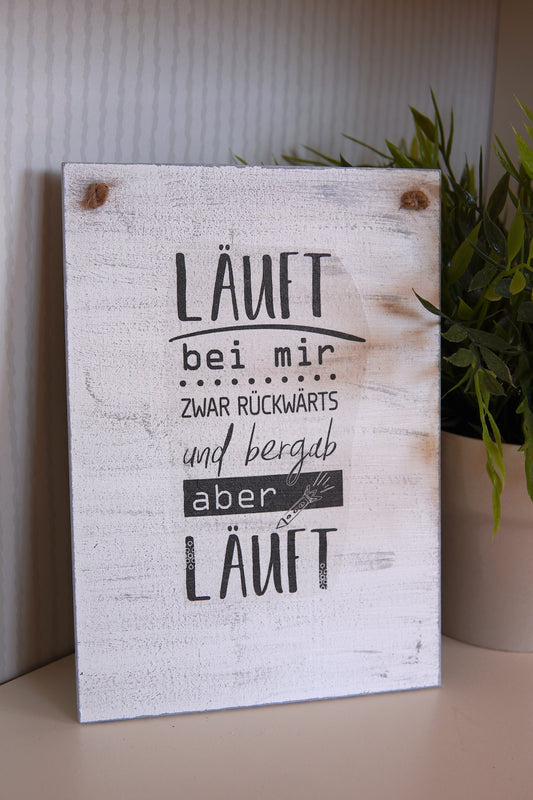 LÄUFT
bei mir
ZWAR RÜCKWÄRTS
und bergab
aber
LÄUFT